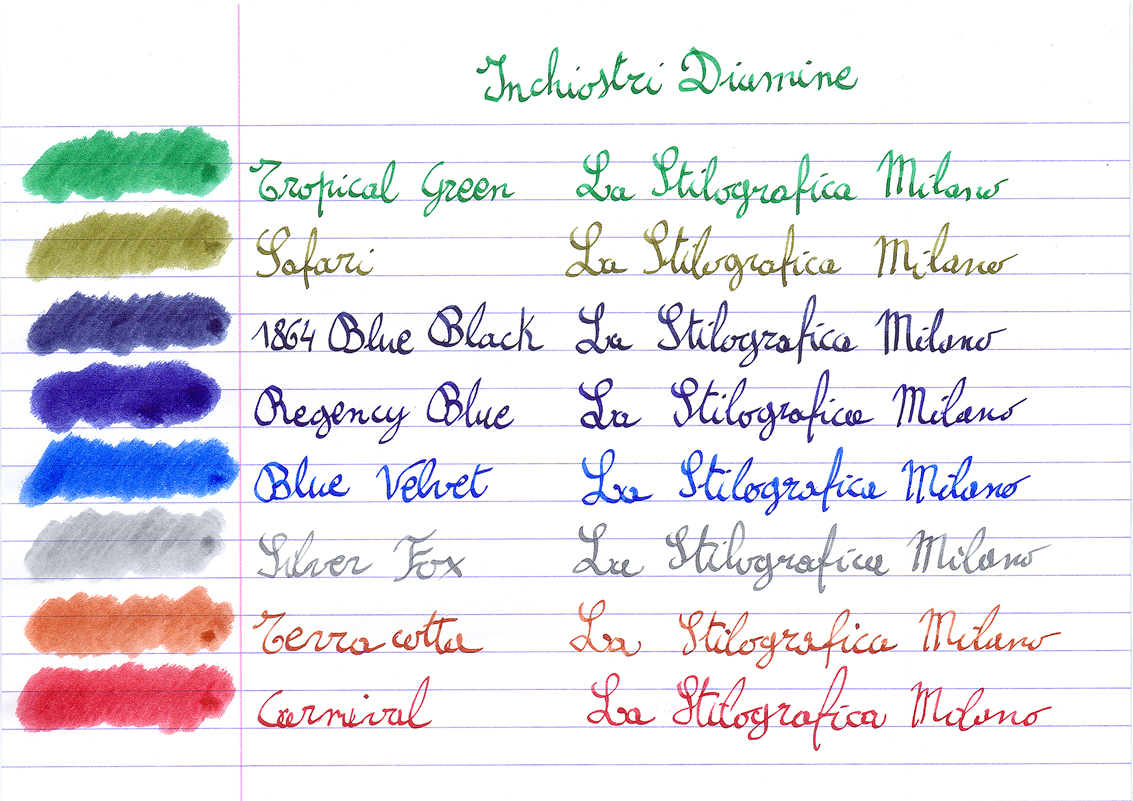 Inchiostri Diamine
Tropical Green La Stilografica Milano
Safari La Stilografica Milano
1864 Blue Black La Stilografica Milano
Regency Blue La Stilografica Milano
Blue Velvet La Stilografica Milano
Silver Fox La Stilografica Milano
Terracotta La Stilografica Milano
Carnival La Stilografica Milano